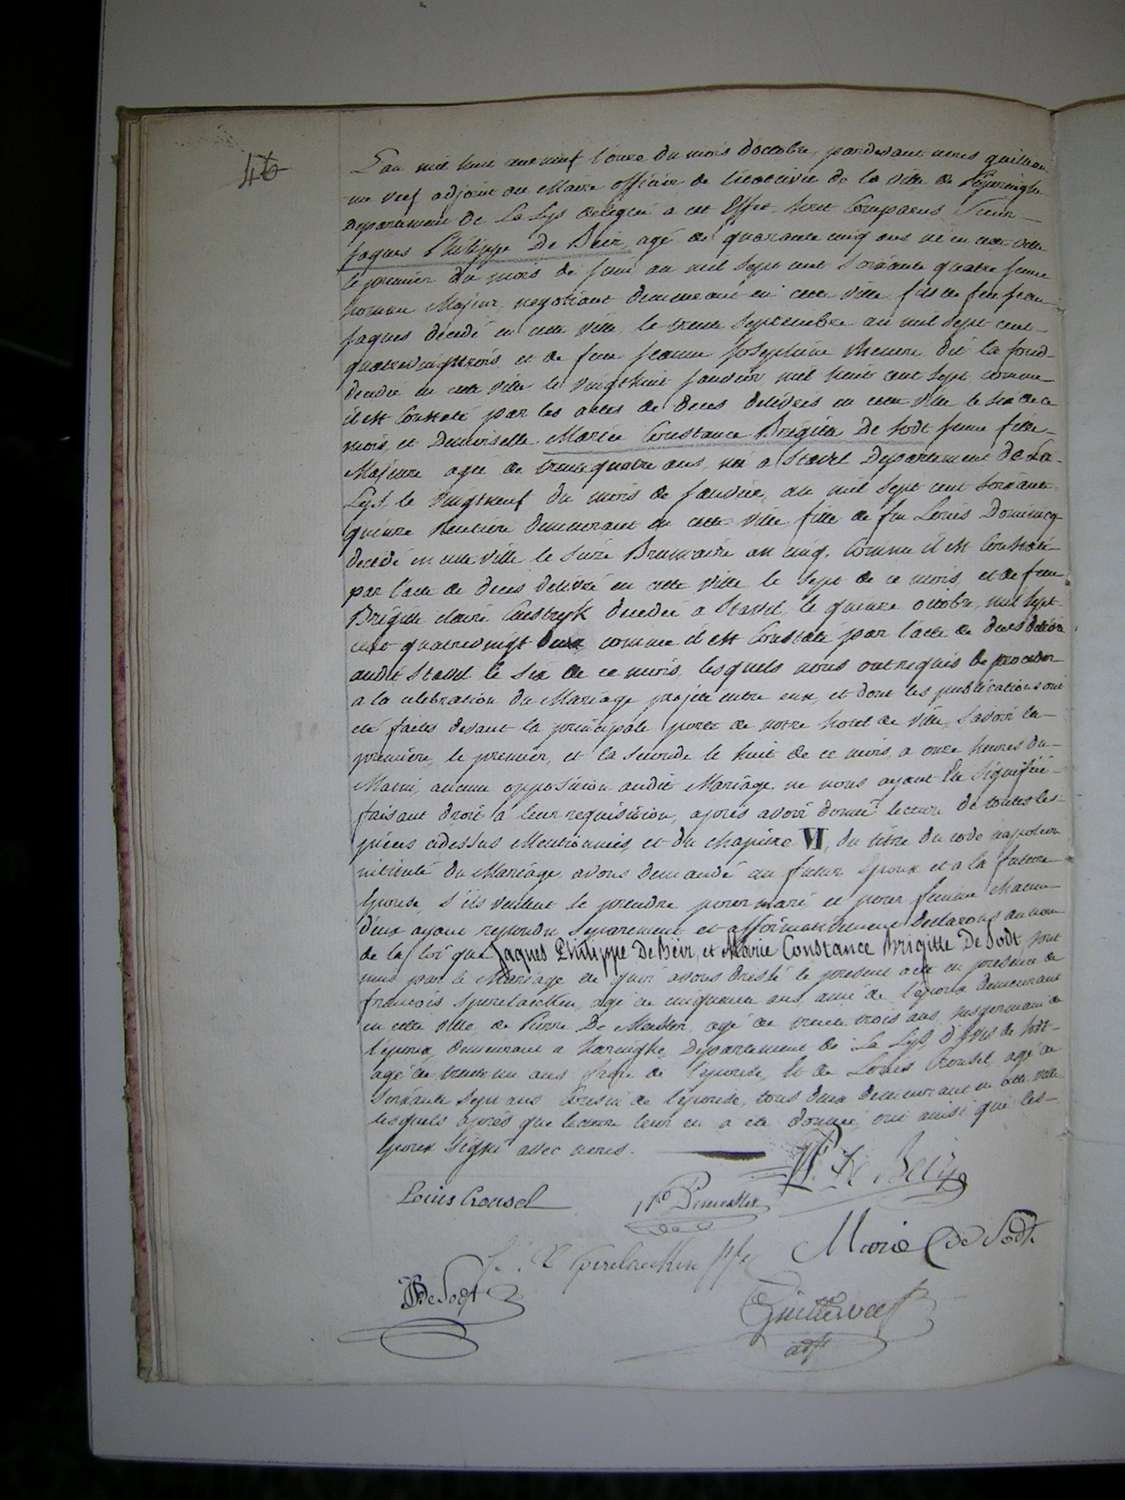 46
L'an mil huit cent neuf l'onze du mois d'octobre, pardevant nous guillau
me veef adjoint au Maire officier de l'état civil de la ville de Poperinghe
Departement de La Lys delegué a cet Effet, sont Comparus Sieur
Jaques Philippe De Beir, agé de quarante cinq ans né en cette ville
le premier du mois de juin an mil sept cent soixante quatre jeune
homme Majeur negotiant demeurant en cette ville fils de feu jean
jaques decedé en cette ville le trente septembre an mil sept cent
quatrevingttrois et de feue jeanne josephine dit la fond
decedée en cette ville le vingthuit janvier mil huit cent sept comme
il est Constaté par les actes de deces delivrés en cette ville le six de ce
mois, et Demoiselle Marie Constance Brigitte De Sodt jeune fille
Majeure agée de trente quatre ans, née a Stavel Departement de La
Lys le vingtneuf du mois de janvier, an mil sept cent soixante
quinze Rentiere demeurant en cette ville fille de feu Louis Dominicq
decedé en cette ville le seize Brumaire an cinq. Comme il est Constaté
par l'acte de deces delivré en cette ville le sept de ce mois, et de feue
Brigitte claire decedée a Stavel, le quinze octobre, mil sept
cent quatrevingt deux comme il est Constaté par l'acte de deces delivré
audit Stavel le six de ce mois, lesquels nous ont requis de proceder
a la celebration du Mariage projeté entre eux, et dont les publications ont
été faites devant la principale porte de notre hotel de ville, savoir la
premiere, le premier, et la seconde le huit de ce mois, a onze heures du
Matin, aucune opposition audit Mariage ne nous ayant été signifiée
faisant droit a leur requisition, après avoir donné lecture de toutes les
pièces cidessus Mentionnées, et du chapitre VI, du titre du code napoleon
intitulé du Mariage avons demandé au futur Epoux et a la future
Epouse, s'ils veulent se prendre pour mari et pour femme chacun
d'eux ayant repondu separement et affirmativement declarons au nom
de la loi que Jaques Philippe De Beir, et Marie Constance Brigitte De Sodt, sont
unis par le Mariage de quoi avons dressé le present acte en presence de
francois sperelaecken, agé de cinquante ans ami de l'epoux demeurant
en cette ville, de Pierre De agé de trente trois ans de
l'epoux, demeurant a haringhe, Departement de La Lys, d' de Sodt
agé de trente un ans frere de l'epouse, Et de Louis Crousel, agé de
soixante sept ans Cousin de l'epouse, tous deux demeurant en cette ville
lesquels après que lecture leur en a eté donnée, ont ainsi que les
Epoux Signé avec nous.
Ph. De Beir
Louis Crousel
Marie C De Sodt
De Sodt
Guille veef
adjt